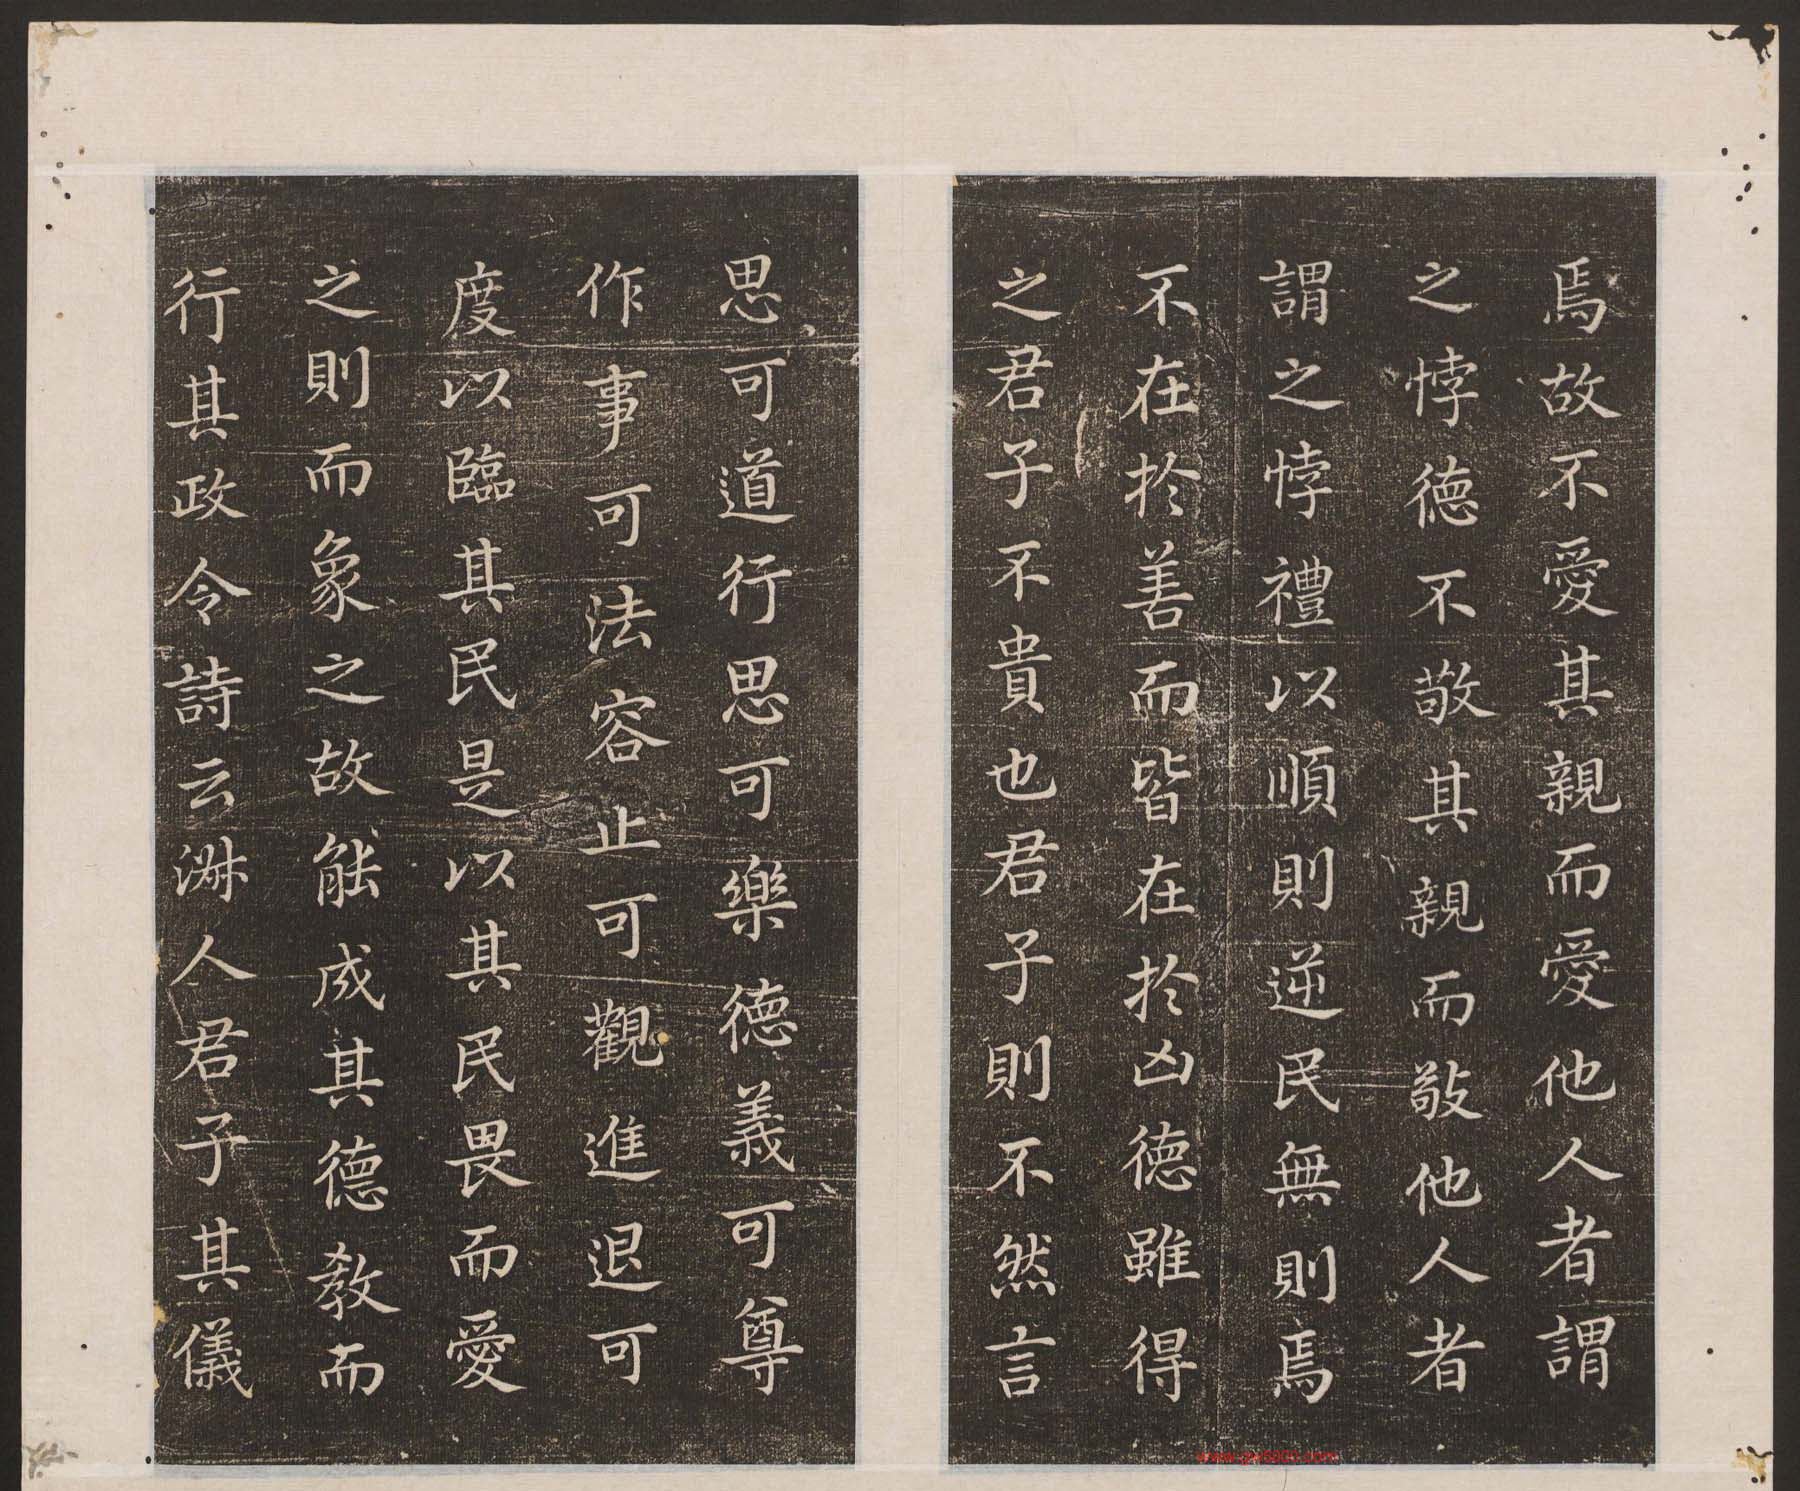 焉故不愛其親而愛他人者謂
之悖德不敬其親而敬他人者
謂之悖禮以順則逆民無則焉
不在於善而皆在於凶德雖得
之君子不貴也君子則不然言
思可道行思可樂德義可尊
作事可法容止可觀進退可
度以臨其民是以其民畏而愛
之則而象之故能成其德教而
行其政令詩云淋人君子其儀
www.gw6000.com